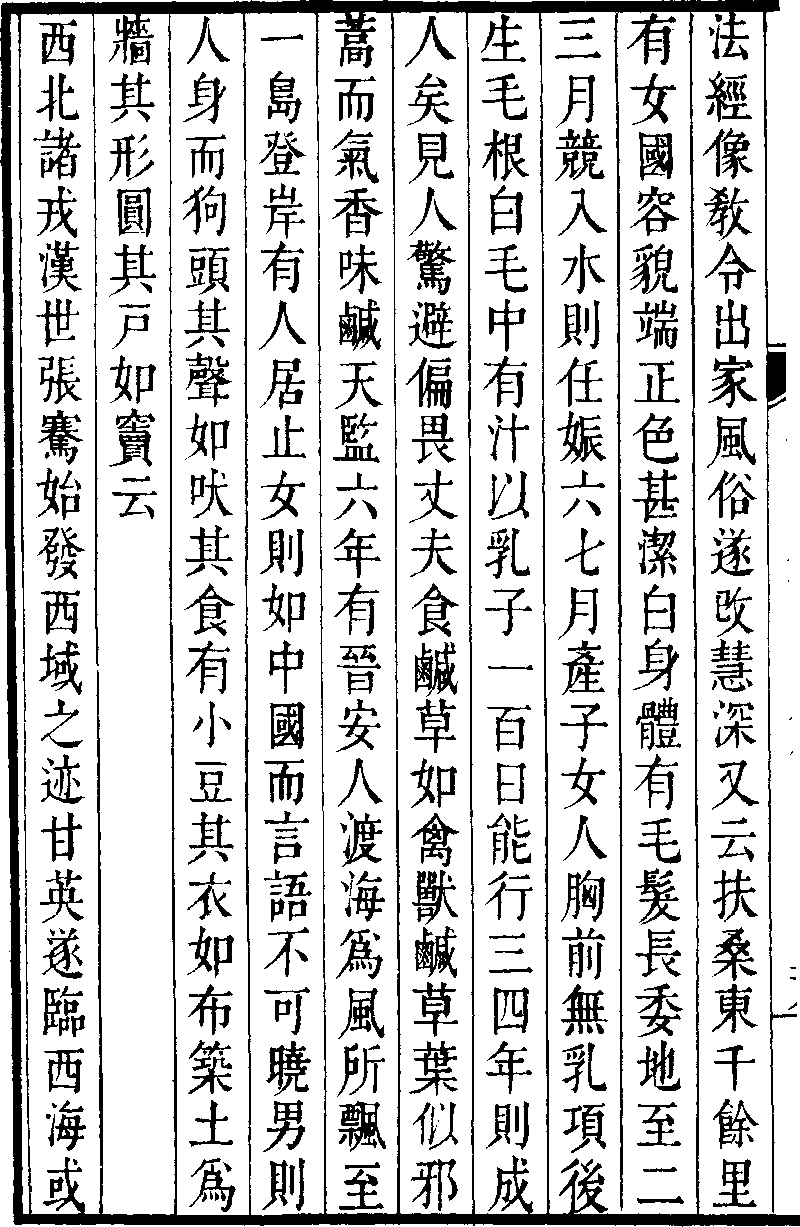 法經像教令出家風俗遂改慧深又云扶桑東千餘里
有女國容貌端正色甚潔白身體有毛髮長委地至二
三月競入水則任娠六七月產子女人胸前無乳項後
生毛根白毛中有汁以乳子一百日能行三四年則成
人矣見人驚避偏畏丈夫食鹹草如禽獸鹹草葉似邪
蒿而氣香味鹹天監六年有晉安人渡海為風所飄至
一島登岸有人居止女則如中國而言語不可曉男則
人身而狗頭其聲如吠其食有小豆其衣如布築土為
牆其形圓其戶如竇云
西北諸戎漢世張騫始發西域之迹甘英遂臨西海或